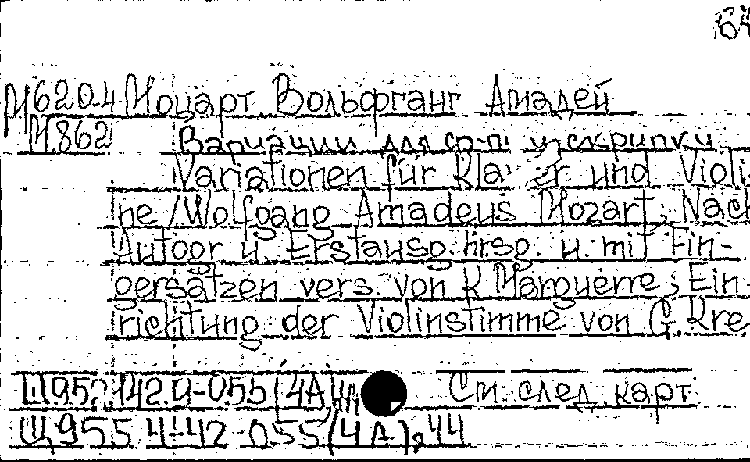 64
М620.4 Моцарт, Вольфганг Амадей
М862
Вариации для ф-п. и скрипки
Variationen für Klavier und Violi-
ne / Wolfgang Amadeus Mozart, Nach
Autogr. u. Erstausg. hrsg. u. mit Fin-
gersätzen vers. von K. Marguerre; Ein-
richtung der Violinstimme von G. Kre-
(4А) См. след. карт
Щ955.4-42-055(4А),44